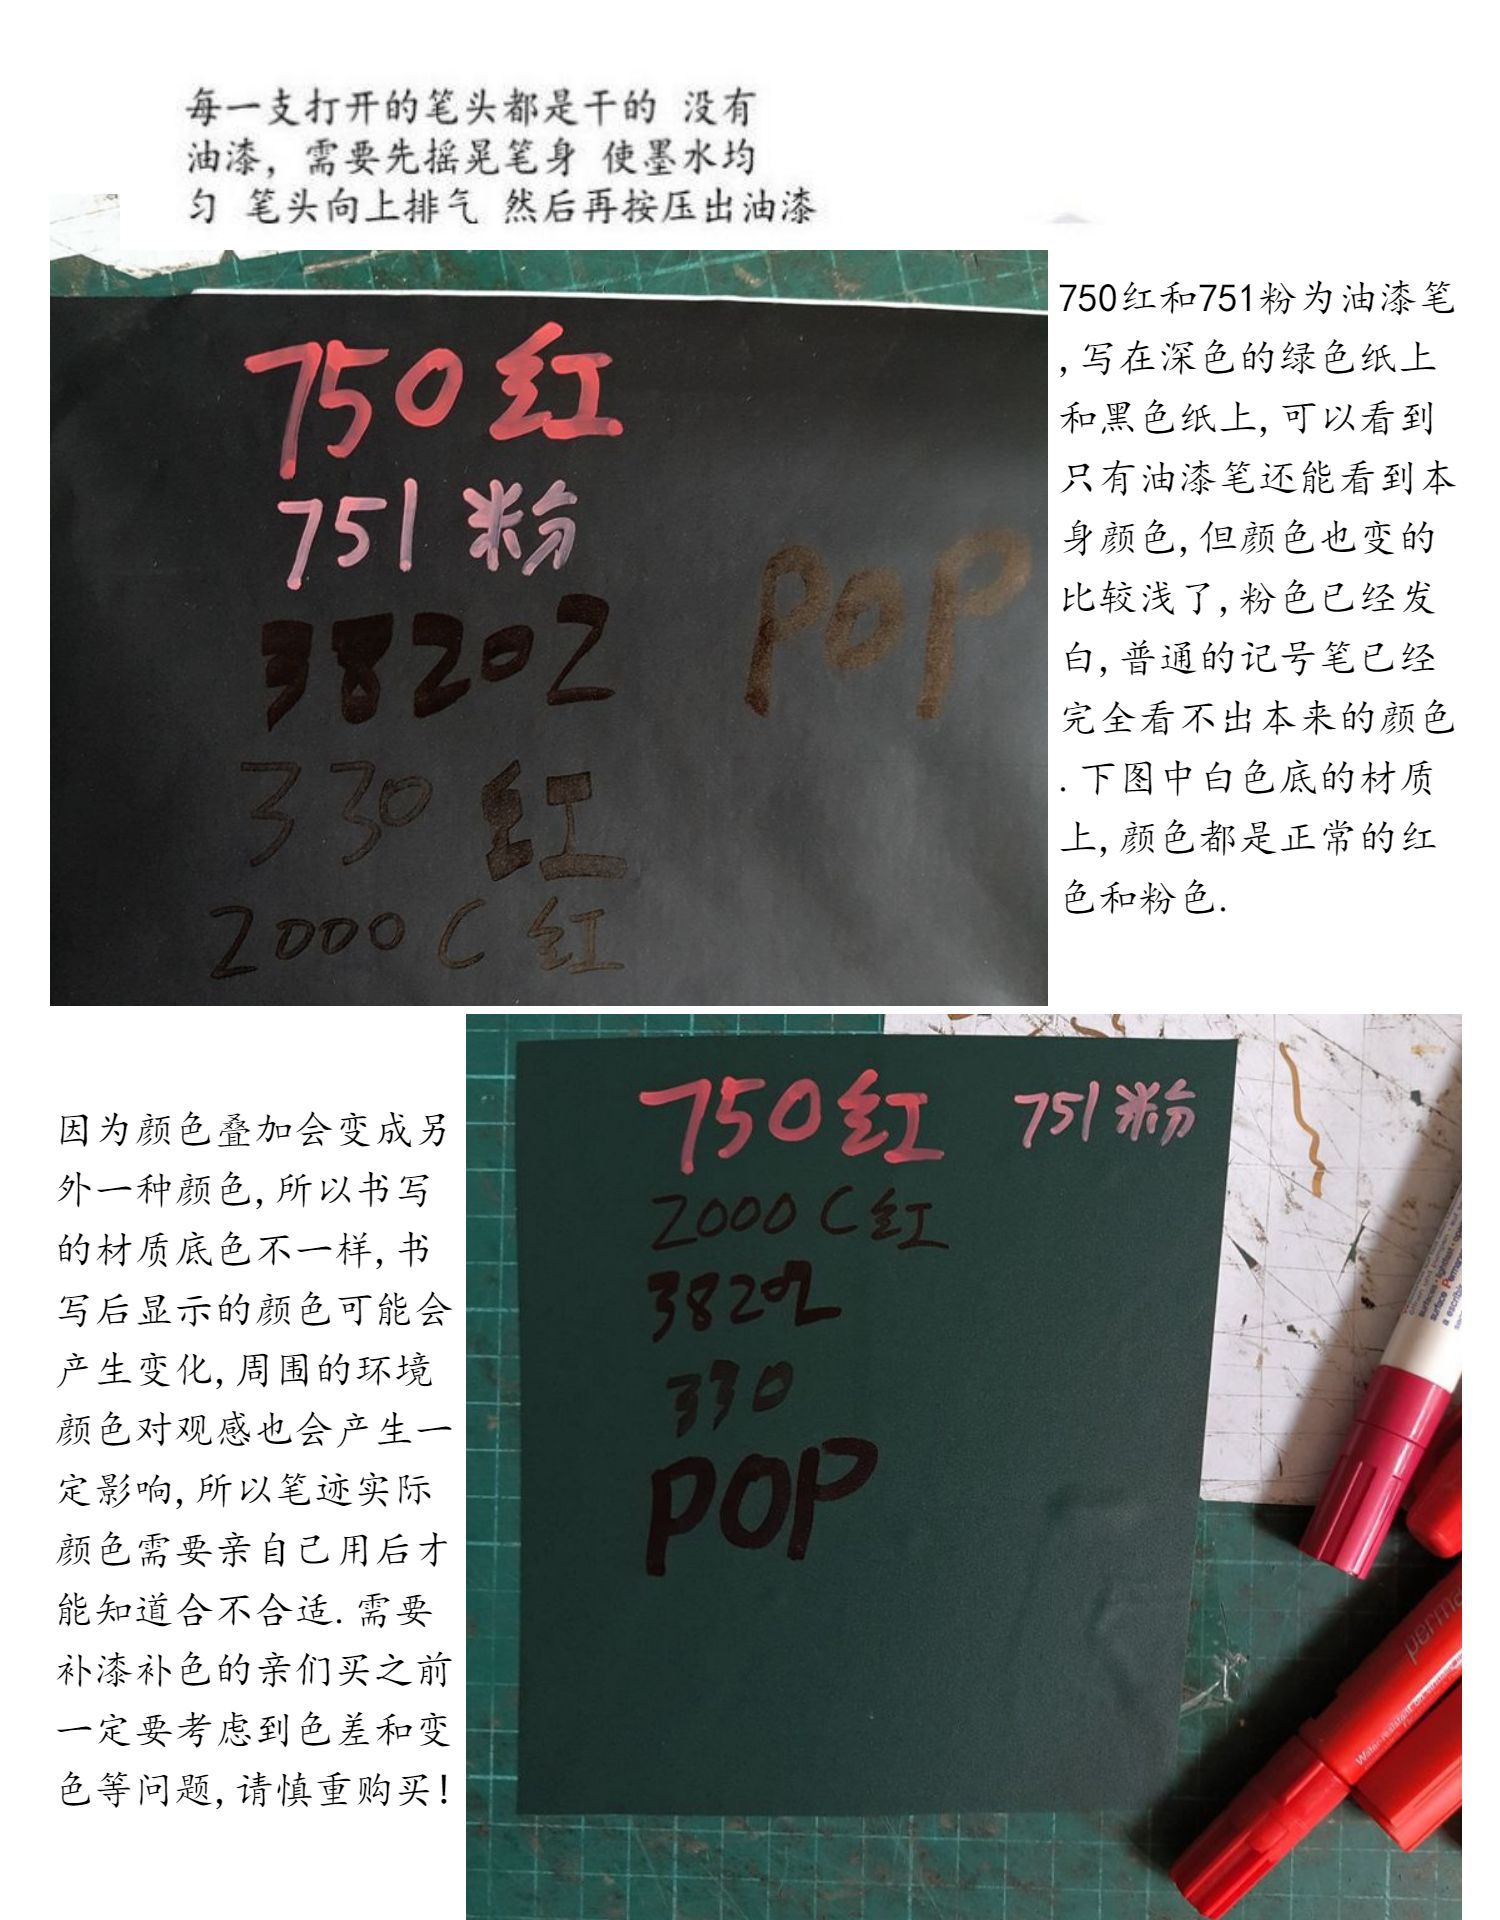 每一支打开的笔头都是干的 没有
油漆，需要先摇晃笔身 使墨水均
匀 笔头向上排气 然后再按压出油漆
750红
751粉
38202
330 红
2000 C 红
POP
750红和751粉为油漆笔
,写在深色的绿色纸上
和黑色纸上,可以看到
只有油漆笔还能看到本
身颜色,但颜色也变的
比较浅了,粉色已经发
白,普通的记号笔已经
完全看不出本来的颜色
.下图中白色底的材质
上,颜色都是正常的红
色和粉色.
因为颜色叠加会变成另
外一种颜色,所以书写
的材质底色不一样,书
写后显示的颜色可能会
产生变化,周围的环境
颜色对观感也会产生一
定影响,所以笔迹实际
颜色需要亲自己用后才
能知道合不合适.需要
补漆补色的亲们买之前
一定要考虑到色差和变
色等问题,请慎重购买!
750红 751粉
2000 C 红
38202
330
POP
perma